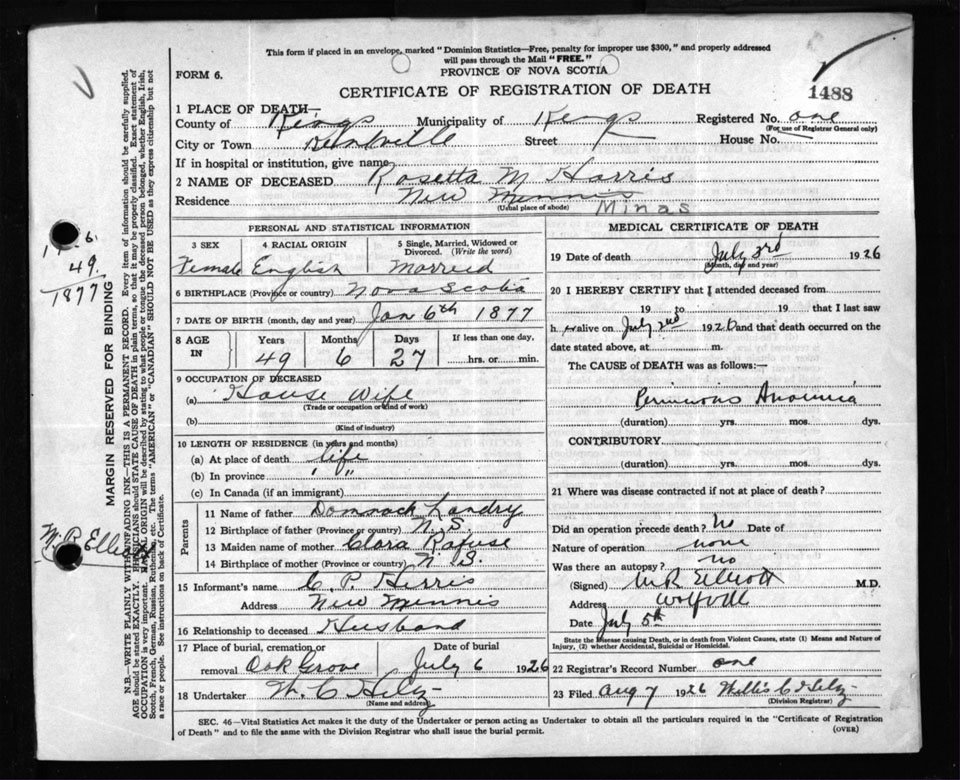 This form if placed in an envelope, marked "Dominion Statistics—Free, penalty for improper use $300," and properly addressed
will pass through the Mail "FREE."
PROVINCE OF NOVA SCOTIA
FORM 6.
CERTIFICATE OF REGISTRATION OF DEATH
1488
1 PLACE OF DEATH—
County of Kings Municipality of Kings Registered No. one
(For use of Registrar General only)
City or Town Kentville Street House No.
If in hospital or institution, give name
2 NAME OF DECEASED Rosetta M Harris
Residence New Minnis Minas
(Usual place of abode)
PERSONAL AND STATISTICAL INFORMATION
3 SEX 4 RACIAL ORIGIN 5 Single, Married, Widowed or
Divorced. (Write the word)
Female English Married
6 BIRTHPLACE (Province or country) Nova Scotia
7 DATE OF BIRTH (month, day and year) Jan 6th 1877
8 AGE IN Years Months Days If less than one day,
49 6 27 hrs. or min.
9 OCCUPATION OF DECEASED
(a) House Wife
(Trade or occupation or kind of work)
(b)
(Kind of industry)
10 LENGTH OF RESIDENCE (in years and months)
(a) At place of death life
(b) In province " "
(c) In Canada (if an immigrant)
Parents
11 Name of father Landry
12 Birthplace of father (Province or country) N.S.
13 Maiden name of mother Clara Rafuse
14 Birthplace of mother (Province or country) N S.
15 Informant's name C. P. Herris
Address New Minnis
16 Relationship to deceased Husband
17 Place of burial, cremation or Date of burial
removal Oak Grove July 6 1926
18 Undertaker W. C
(Name and address)
MEDICAL CERTIFICATE OF DEATH
19 Date of death July 3rd 1926
(Month, day and year)
20 I HEREBY CERTIFY that I attended deceased from
19 to 19 that I last saw
h er alive on July 2nd 1926 and that death occurred on the
date stated above, at m.
The CAUSE of DEATH was as follows:—
Pernicious Anaemia
(duration) yrs. mos. dys.
CONTRIBUTORY
(duration) yrs. mos. dys.
21 Where was disease contracted if not at place of death?
Did an operation precede death? No Date of
Nature of operation none
Was there an autopsy? no
(Signed) M R Elliott M.D.
Address Wolfville
July 5th
State the Disease causing Death, or in death from Violent Causes, state (1) Means and Nature of
Injury, (2) whether Accidental, Suicidal or Homicidal.
22 Registrar's Record Number one
23 Filed Aug 7 1926 Willis C
(Division Registrar)
SEC. 46—Vital Statistics Act makes it the duty of the Undertaker or person acting as Undertaker to obtain all the particulars required in the "Certificate of Registration
of Death" and to file the same with the Division Registrar who shall issue the burial permit.
(OVER)
MARGIN RESERVED FOR BINDING
N.B.—WRITE PLAINLY WITH UNFADING INK—THIS IS A PERMANENT RECORD. Every item of information should be carefully supplied.
AGE should be stated EXACTLY. PHYSICIANS should STATE CAUSE OF DEATH in plain terms, so that it may be properly classified. Exact statement of
OCCUPATION is very important. RACIAL ORIGIN will be described by stating to what people or tongue the deceased person belonged, whether English, Irish,
Scotch, French, German, Russian, Ruthenian, etc. The terms "AMERICAN" or "CANADIAN" SHOULD NOT BE USED as they express citizenship but not
a race or people. See instructions on back of Certificate.
49.
1877